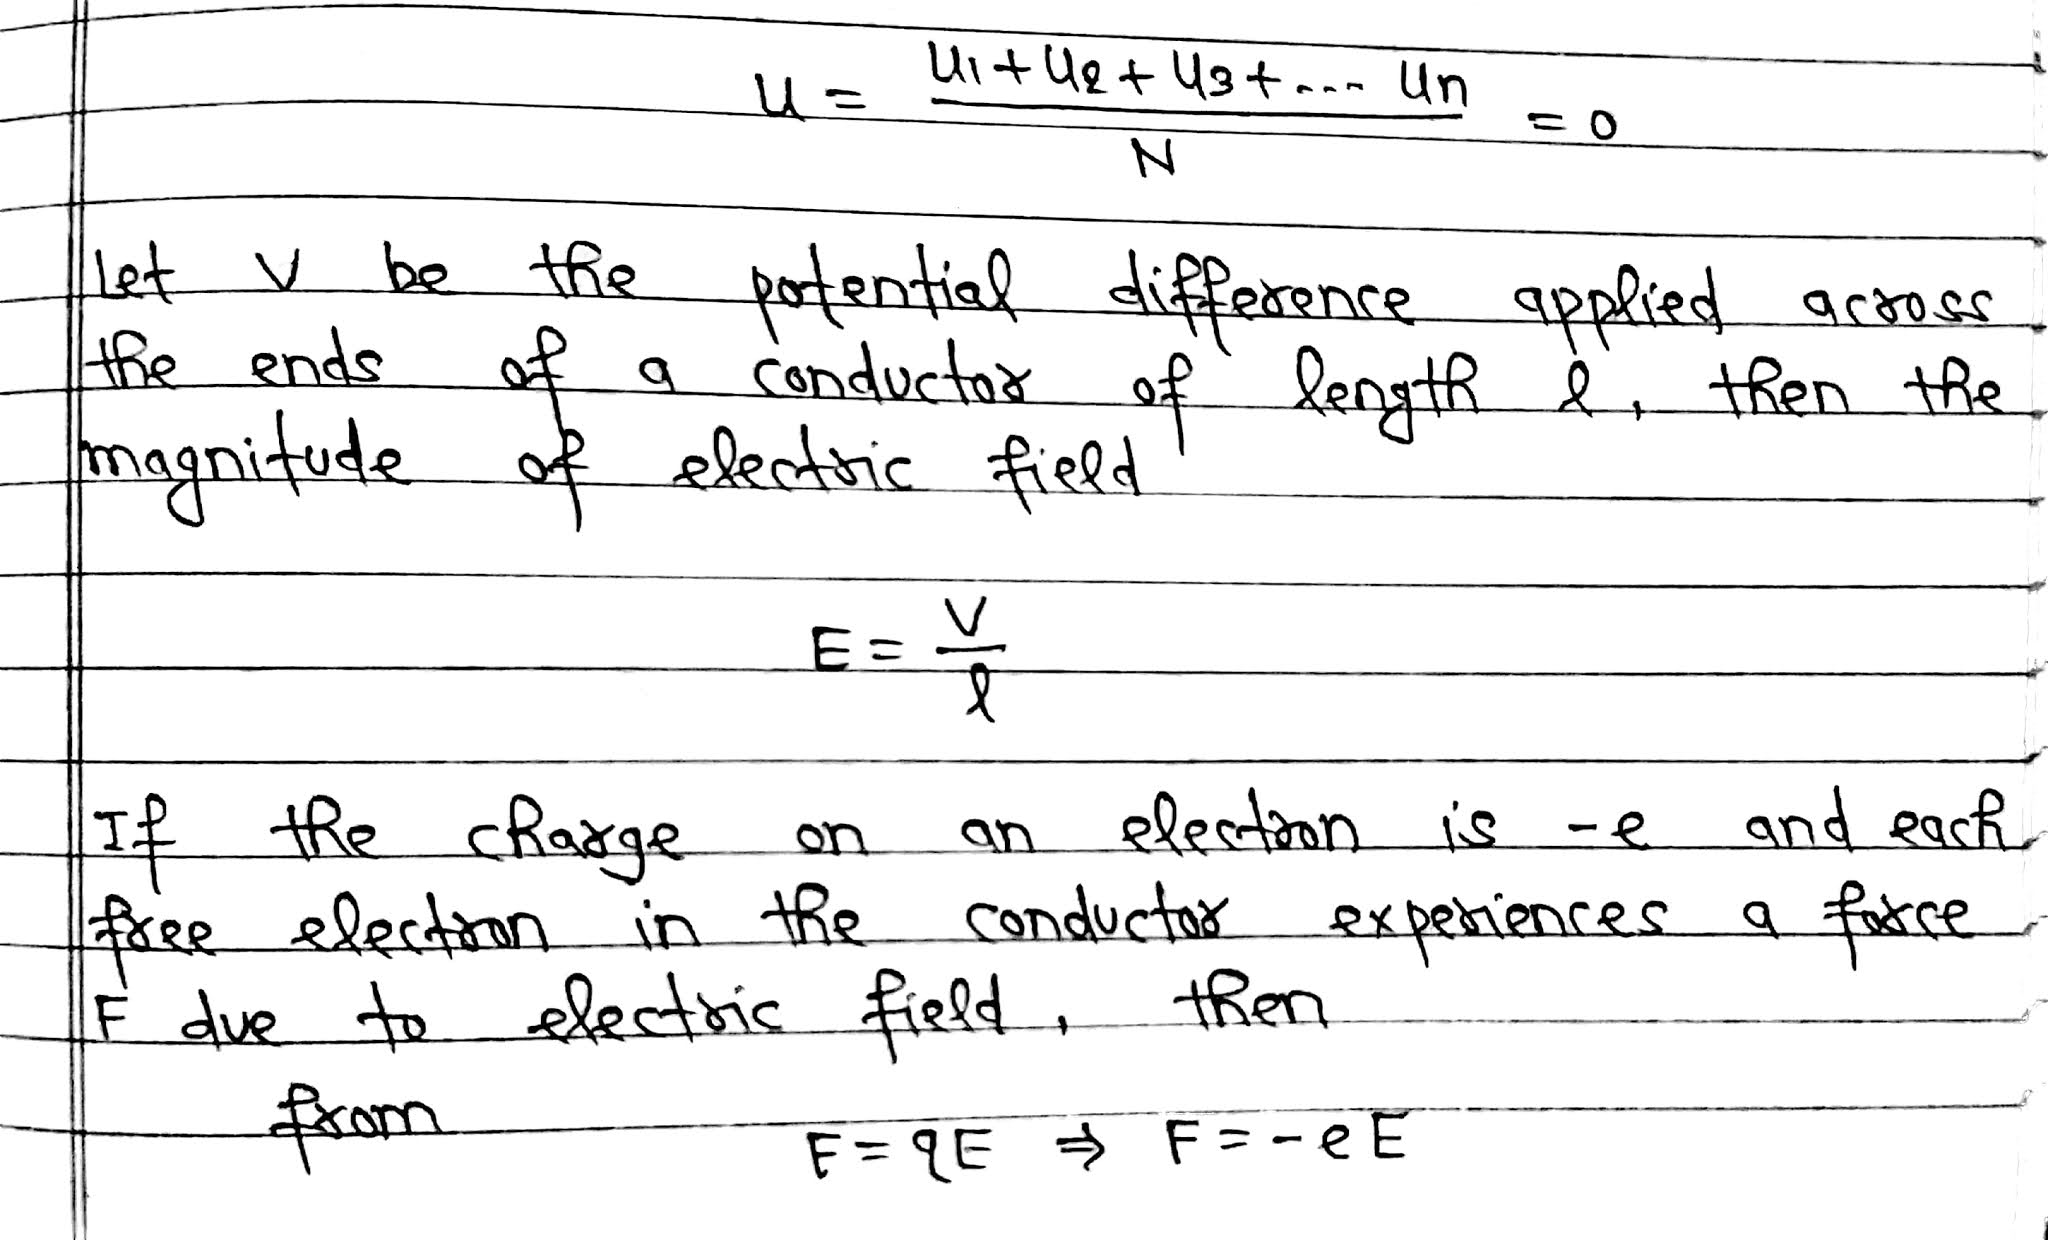 u = (u1 + u2 + u3 + .... un) / N = 0
Let V be the potential difference applied across
the ends of a conductor of length l, then the
magnitude of electric field
E = V / l
If the charge on an electron is -e and each
free electron in the conductor experiences a force
F due to electric field, then
from
F = qE ⇒ F = -eE